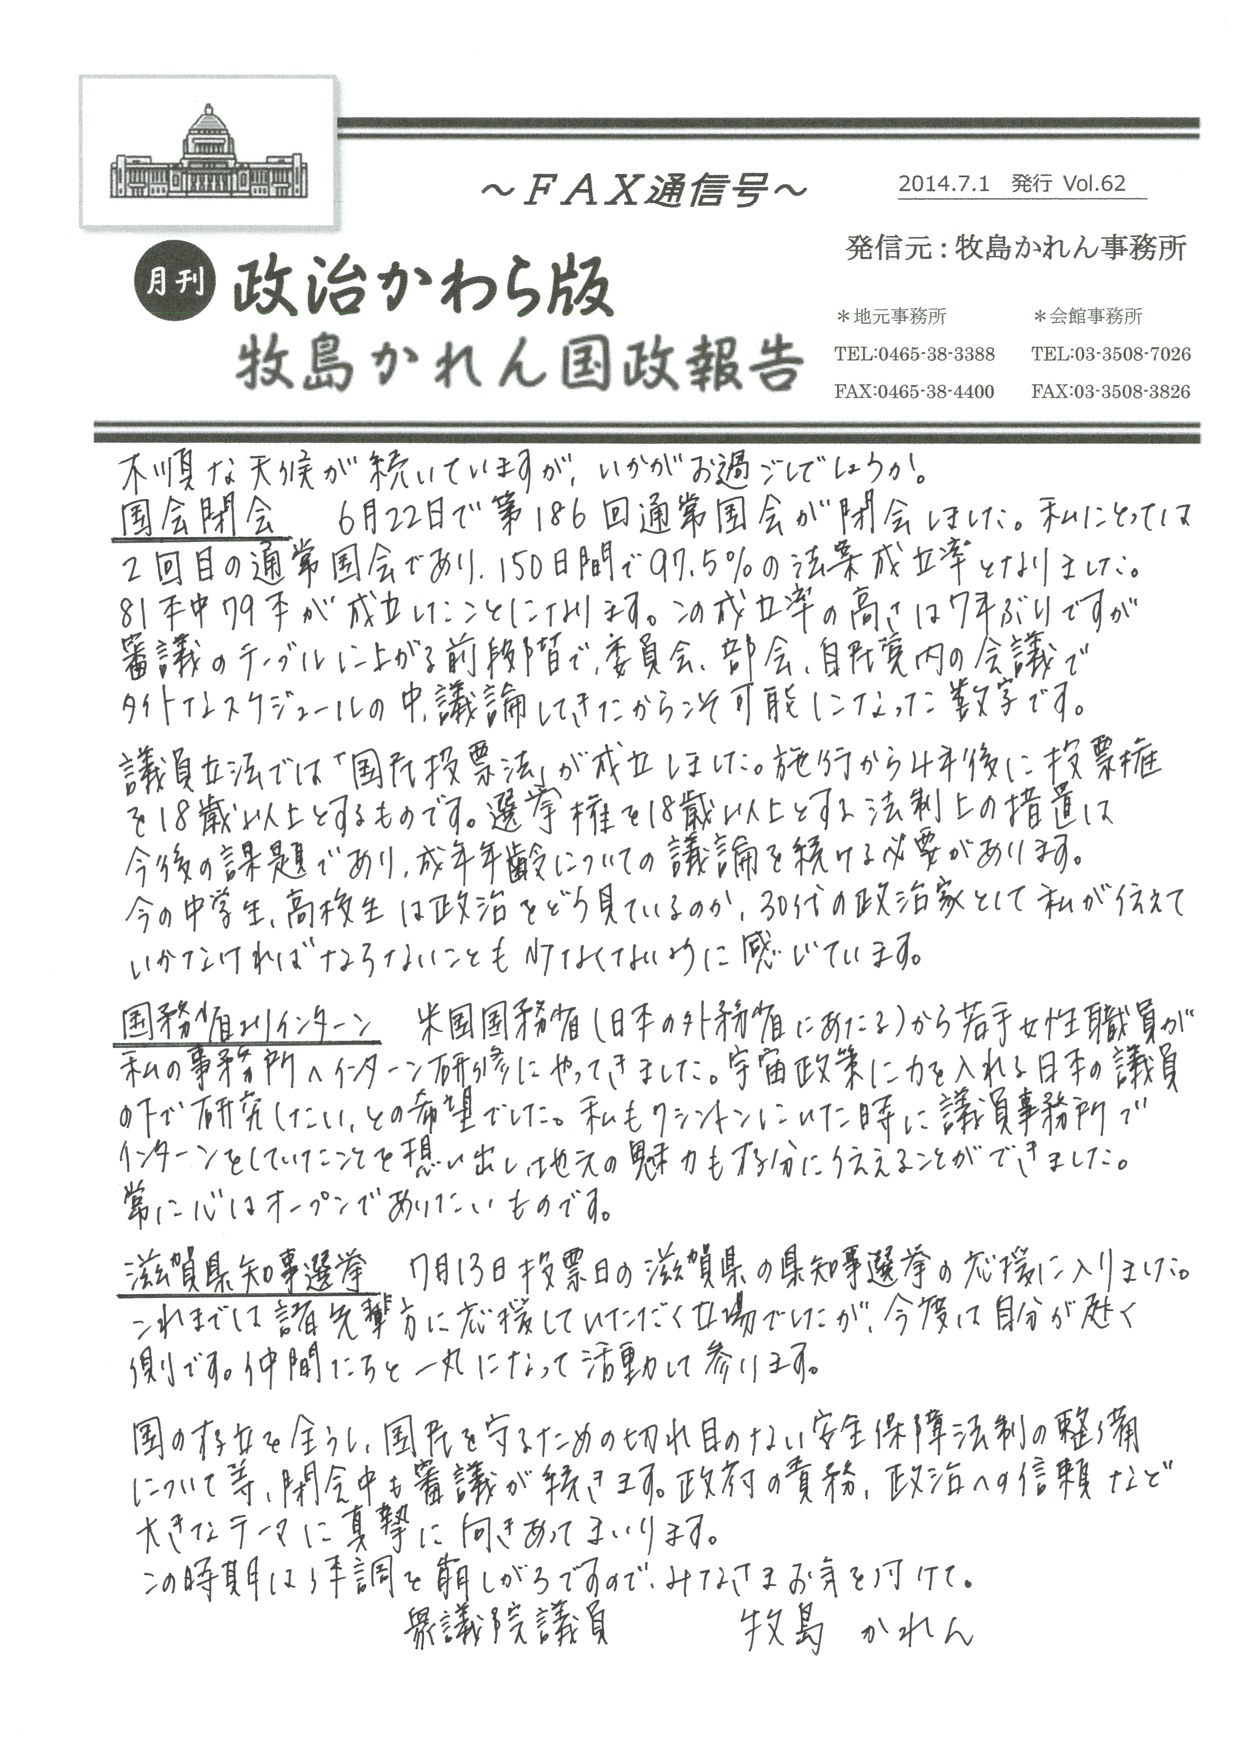 ～FAX通信号～
2014.7.1　発行 Vol.62
発信元：牧島かれん事務所
月刊 政治かわら版
牧島かれん国政報告
＊地元事務所　＊会館事務所
TEL:0465-38-3388　TEL:03-3508-7026
FAX:0465-38-4400　FAX:03-3508-3826
不順な天候が続いていますが、いかがお過ごしでしょうか。
国会閉会　6月22日で第186回通常国会が閉会しました。私にとっては
2回目の通常国会であり、150日間で97.5%の法案成立率となりました。
81本中79本が成立したことになります。この成立率の高さは7年ぶりですが
審議のテーブルに上がる前段階で、委員会、部会、自民党内の会議で
タイトなスケジュールの中、議論してきたからこそ可能になった数字です。
議員立法では「国民投票法」が成立しました。施行から4年後に投票権
を18歳以上とするものです。選挙権を18歳以上とする法制上の措置は
今後の課題であり、成年年齢についての議論を続ける必要があります。
今の中学生、高校生は政治をどう見ているのか、30代の政治家として私が伝えて
いかなければならないことも少なくないように感じています。
国務省よりインターン　米国国務省(日本の外務省にあたる)から若手女性職員が
私の事務所へインターン研修にやってきました。宇宙政策に力を入れる日本の議員
の下で研究したい、との希望でした。私もワシントンにいた時に議員事務所で
インターンをしていたことを想い出し、地元の魅力も存分に伝えることができました。
常に心はオープンでありたいものです。
滋賀県知事選挙　7月13日投票日の滋賀県の県知事選挙の応援に入りました。
これまでは諸先輩方に応援していただく立場でしたが、今度は自分が赴く
側です。仲間たちと一丸になって活動して参ります。
国の存立を全うし、国民を守るための切れ目のない安全保障法制の整備
について等、閉会中も審議が続きます。政府の責務、政治への信頼など
大きなテーマに真摯に向きあってまいります。
この時期は体調を崩しがちですので、みなさまお気を付けて。
衆議院議員　牧島 かれん